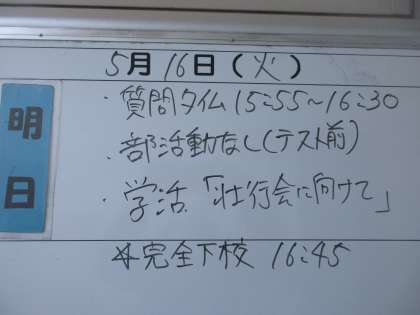 5月16日(火)
明日
・質問タイム15:55〜16:30
・部活動なし(テスト前)
・学活「壮行会に向けて」
☆完全下校 16:45